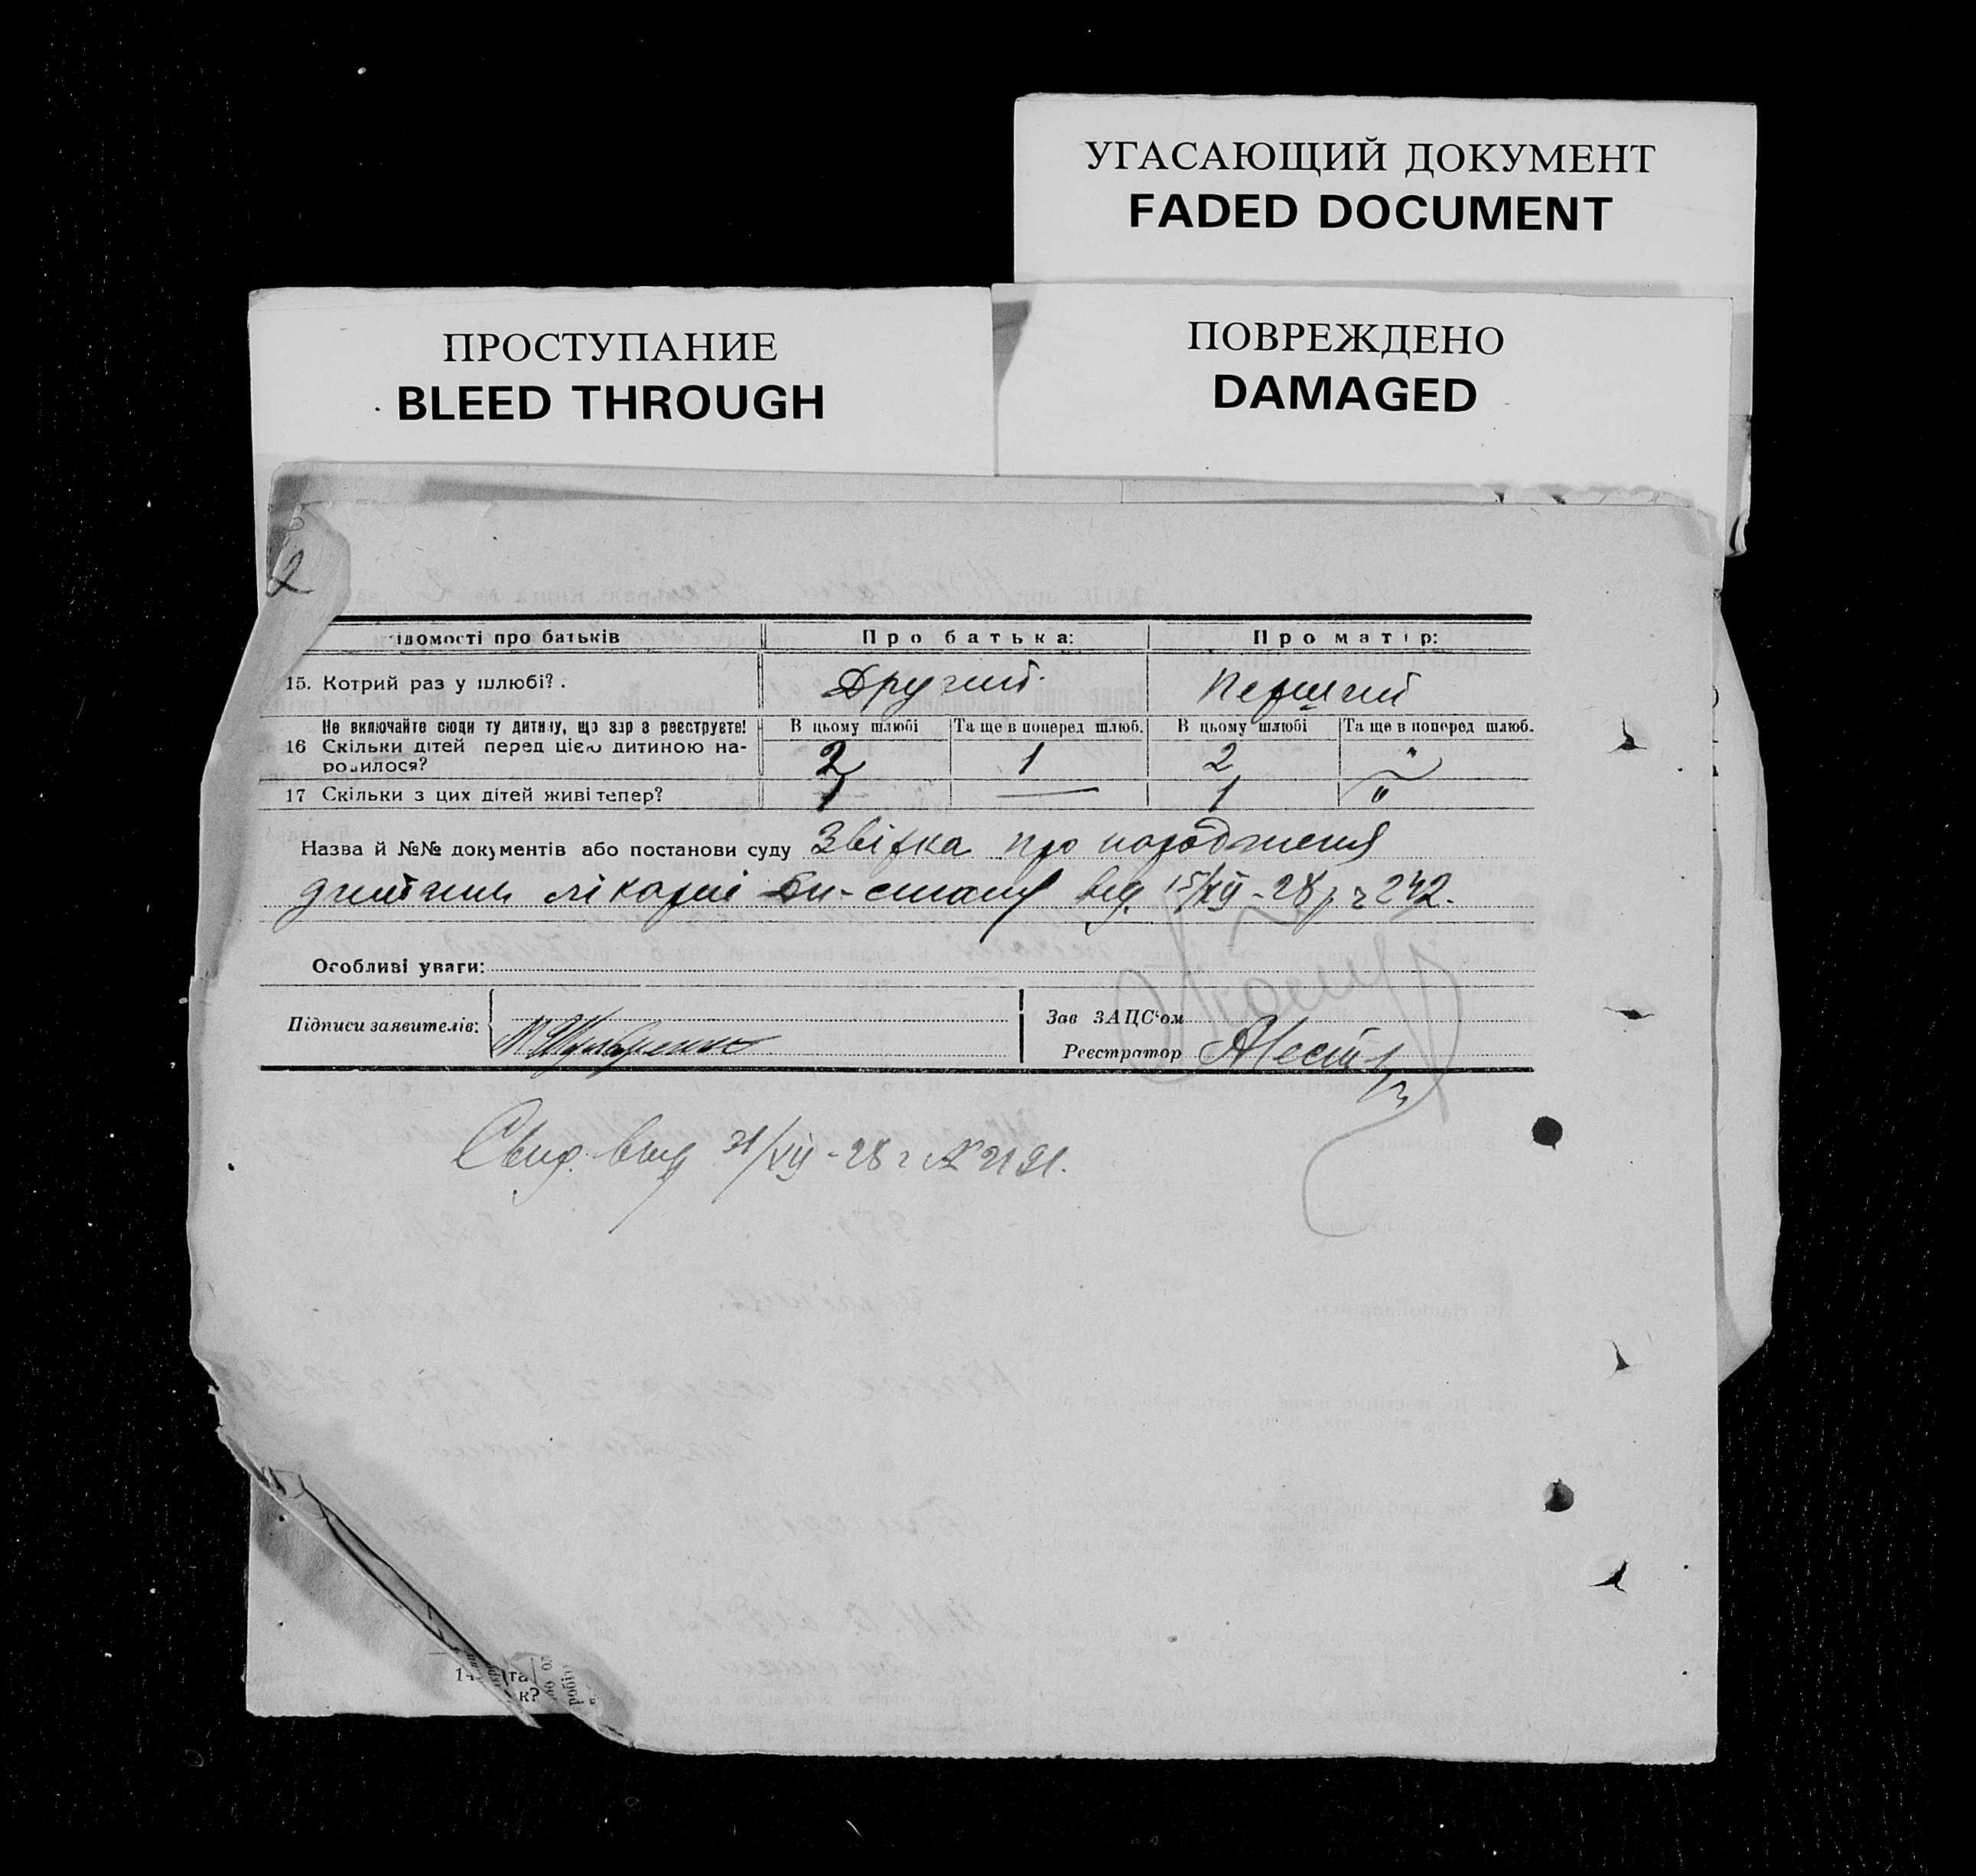 УГАСАЮЩИЙ ДОКУМЕНТ
FADED DOCUMENT
ПРОСТУПАНИЕ
BLEED THROUGH
ПОВРЕЖДЕНО
DAMAGED
2
ідомості про батьків Про батька: Про матір:
15. Котрий раз у шлюбі? . Другий. Перший
Не включайте сюди ту дитину, що зараз реєструєте! В цьому шлюбі Та ще в поперед шлюб. В цьому шлюбі Та ще в поперед шлюб.
16 Скільки дітей перед цією дитиною на- 2 1 2 "
родилося?
17 Скільки з цих дітей живі тепер? 1 — 1 "
Назва й №№ документів або постанови суду Звістка про народження
лікарні від 15/XII-28 р 242.
Особливі уваги:
Підписи заявителів: Зав ЗАЦС'ом
Реєстратор
Свид. выд 31/XII-28 г № 2191.
14 та
к?